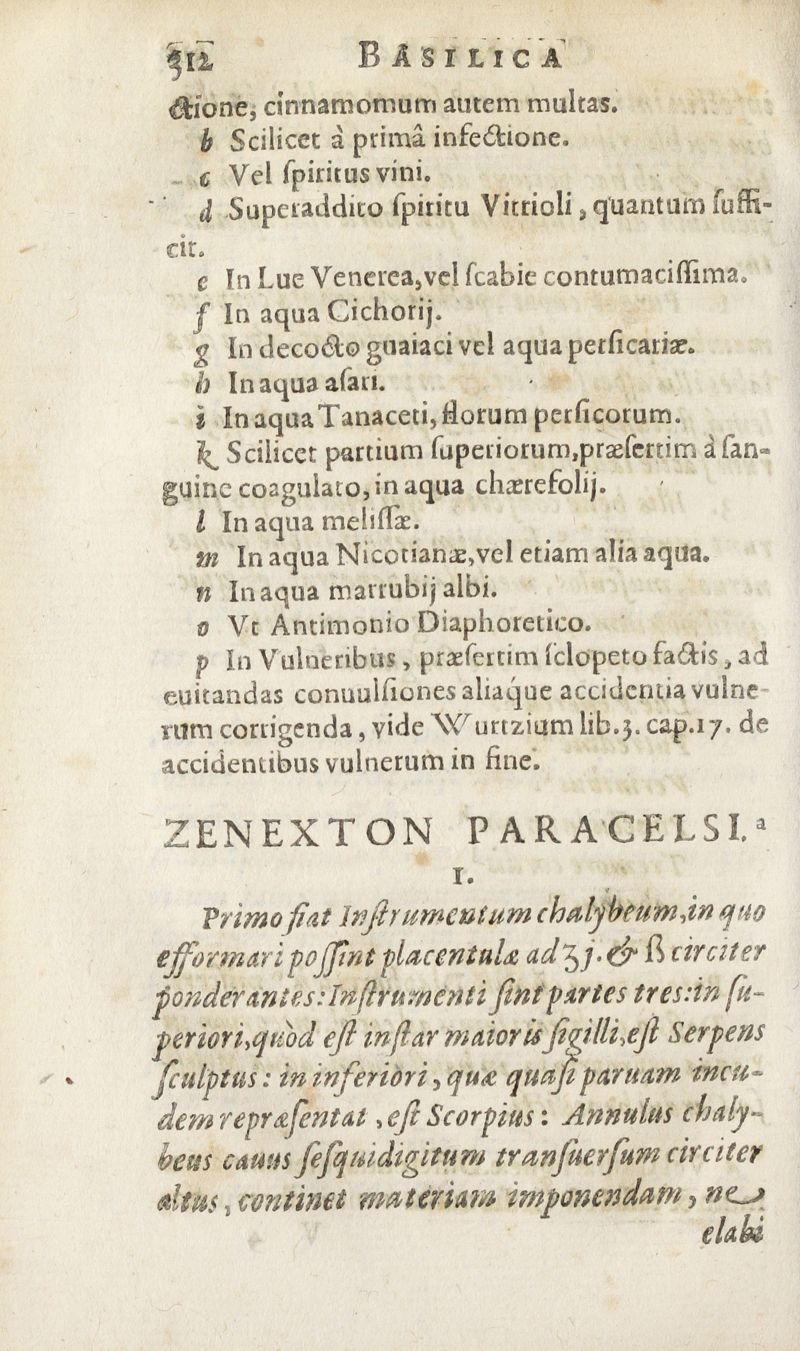 512 BASILICA
ctione, cinnamomum autem multas.
b Scilicet à primâ infectione.
c Vel ſpiritus vini.
d Superaddito ſpiritu Vitrioli, quantum ſuffi-
cit.
e In Lue Venerea, vel ſcabie contumaciſſima.
f In aqua Cichorij.
g In decocto guaiaci vel aqua perſicariæ.
h In aqua aſari.
i In aqua Tanaceti, florum perſicorum.
k Scilicet partium ſuperiorum, præſertim à ſan-
guine coagulato, in aqua chærefolij.
l In aqua meliſſæ.
m In aqua Nicotianæ, vel etiam alia aqua.
n In aqua marrubij albi.
o Vt Antimonio Diaphoretico.
p In Vulneribus, præſertim ſclopeto factis, ad
euitandas conuulſiones aliaque accidentia vulne-
rum corrigenda, vide Wurtzium lib.3. cap.17. de
accidentibus vulnerum in fine.
ZENEXTON PARACELSI. a
I.
Primo fiat Inſtrumentum chalybeum, in quo
efformari poſſint placentulæ ad ʒ j. & ß circiter
ponderantes: Inſtrumenti ſint partes tres: in ſu-
periori, quod eſt inſtar maioris ſigilli, eſt Serpens
ſculptus: in inferiori, quæ quaſi paruam incu-
dem repræſentat, eſt Scorpius: Annulus chaly-
beus cauus ſeſquidigitum tranſuerſum circiter
altus, continet materiam imponendam, ne
elabi